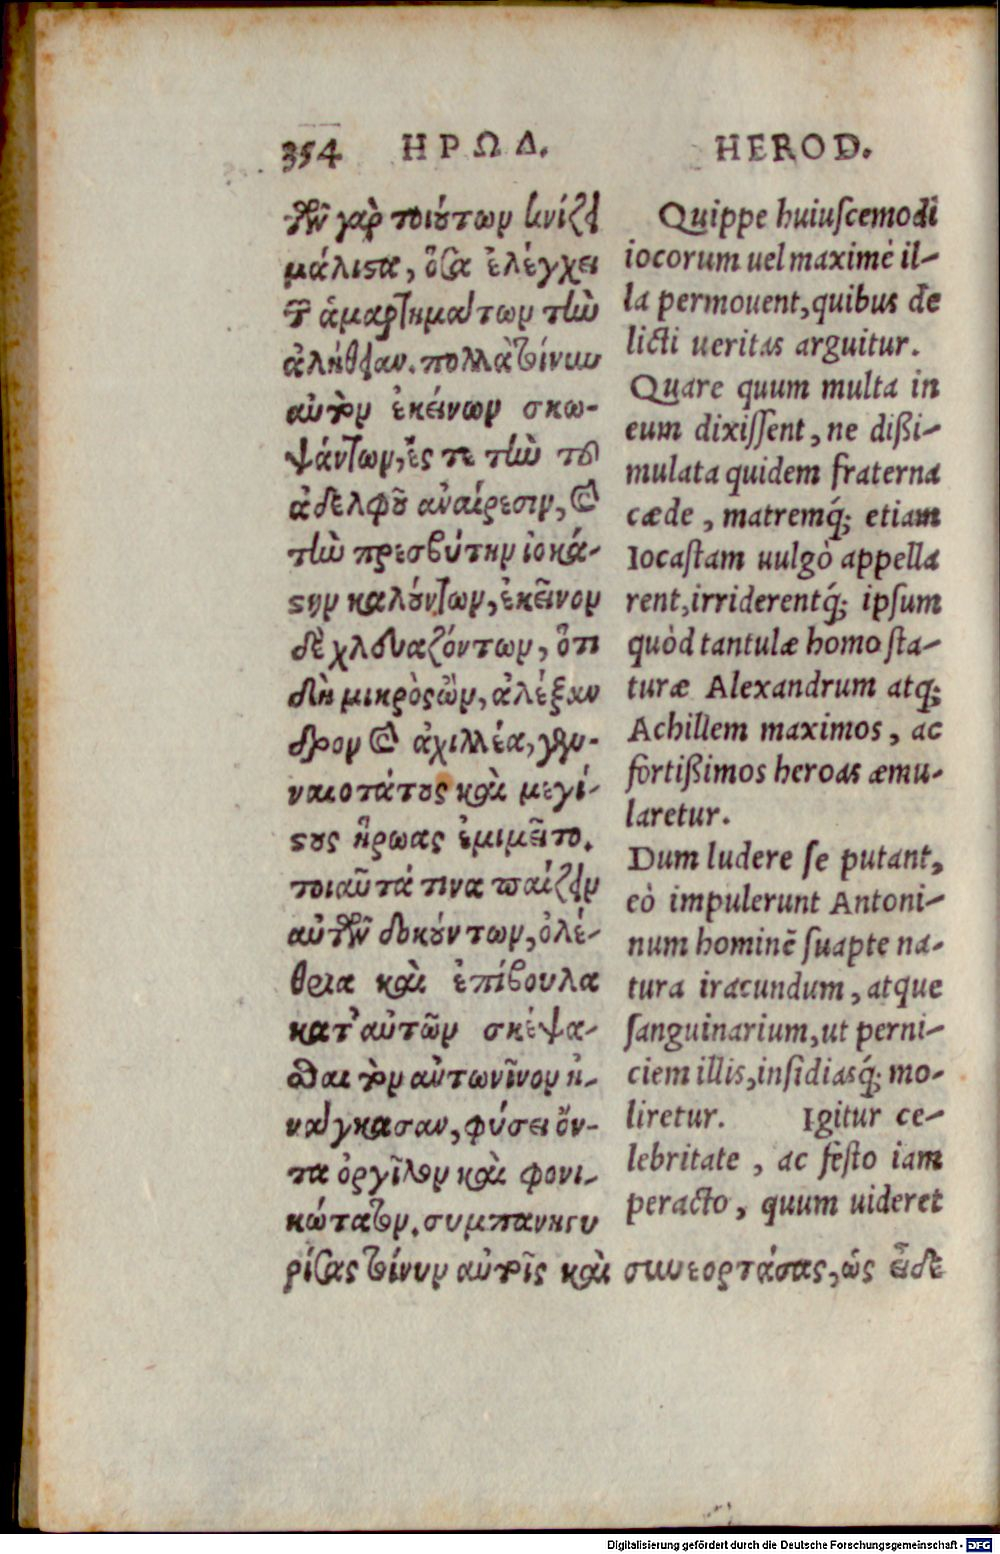 354 ΗΡΩΔ. HEROD.
τῶν γὰρ τοιούτων κνίζει
μάλιστα, ὅσα ἐλέγχει
τῶν ἁμαρτημάτων τὴν
ἀλήθειαν. πολλὰ τοίνυν
αὐτὸν ἐκείνων σκω-
ψάντων, ἔς τε τὴν τοῦ
ἀδελφοῦ ἀναίρεσιν, καὶ
τὴν πρεσβύτην ἰοκά-
στην καλούντων, ἐκεῖνον
δὲ χλευαζόντων, ὅτι
δὴ μικρὸς ὢν, ἀλέξαν
δρον καὶ ἀχιλλέα, γεν-
ναιοτάτους καὶ μεγί-
στους ἥρωας ἐμιμεῖτο.
τοιαῦτά τινα παίζειν
αὐτῶν δοκούντων, ὀλέ-
θρια καὶ ἐπίβουλα
κατ' αὐτῶν σκέψα-
σθαι τὸν αὐτωνῖνον ἠ-
νάγκασαν, φύσει ὄν-
τα ὀργίλον καὶ φονι-
κώτατον. συμπανηγυ
ρίσας τοίνυν αὐτοῖς καὶ συνεορτάσας, ὡς εἶδε
Quippe huiuscemodi
iocorum uel maximè il-
la permouent, quibus de
licti ueritas arguitur.
Quare quum multa in
eum dixissent, ne dißi-
mulata quidem fraterna
cæde, matremq́; etiam
Iocastam uulgò appella
rent, irriderentq́; ipsum
quòd tantulæ homo sta-
turæ Alexandrum atq;
Achillem maximos, ac
fortißimos heroas æmu-
laretur.
Dum ludere se putant,
eò impulerunt Antoni-
num hominẽ suapte na-
tura iracundum, atque
sanguinarium, ut perni-
ciem illis, insidiasq́; mo-
liretur. Igitur ce-
lebritate, ac festo iam
peracto, quum uideret
Digitalisierung gefördert durch die Deutsche Forschungsgemeinschaft - DFG